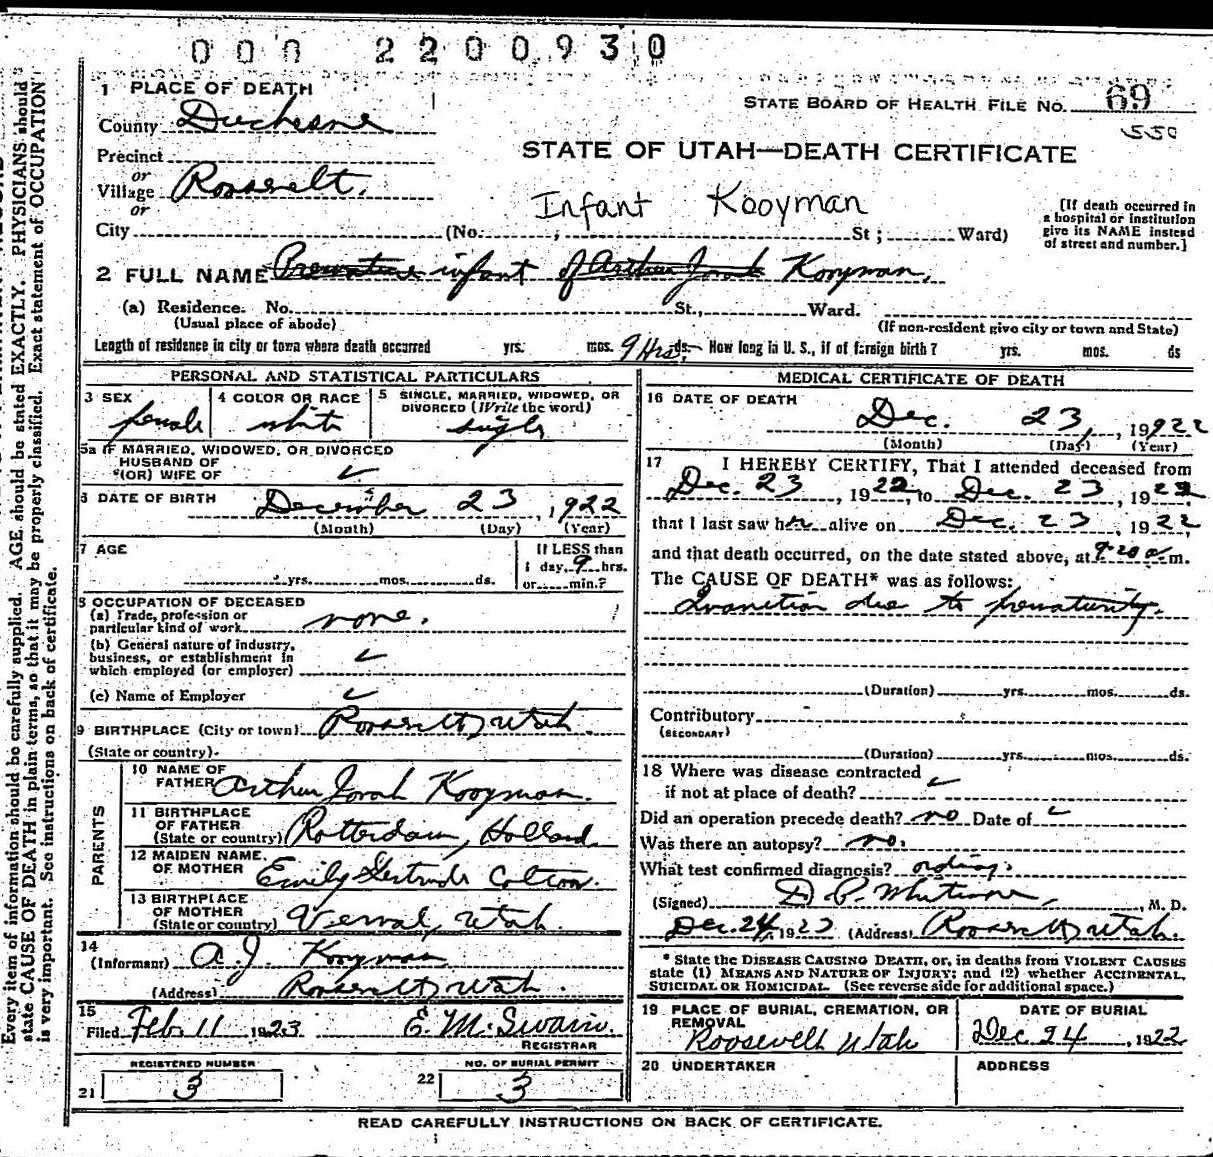 000 2200930
1 PLACE OF DEATH
STATE BOARD OF HEALTH FILE NO. 69
550
County Duchesne
STATE OF UTAH—DEATH CERTIFICATE
Precinct
or
Village Roosevelt.
or
Infant Kooyman
[If death occurred in
a hospital or institution
give its NAME instead
of street and number.]
City (No. , St ; Ward)
2 FULL NAME Premature infant of Arthur Jorah Kooyman.
(a) Residence. No. St., Ward.
(Usual place of abode) (If non-resident give city or town and State)
Length of residence in city or town where death occurred yrs. mos. 9 Hrs. ds. How long in U. S., if of foreign birth? yrs. mos. ds
PERSONAL AND STATISTICAL PARTICULARS
3 SEX 4 COLOR OR RACE 5 SINGLE, MARRIED, WIDOWED, OR
DIVORCED (Write the word)
female white single
5a IF MARRIED, WIDOWED, OR DIVORCED
HUSBAND OF
(OR) WIFE OF ✓
6 DATE OF BIRTH December 23, 1922
(Month) (Day) (Year)
7 AGE If LESS than
yrs. mos. ds. 1 day, 9 hrs.
or min.?
8 OCCUPATION OF DECEASED
(a) Trade, profession or
particular kind of work none.
(b) General nature of industry,
business, or establishment in
which employed (or employer) ✓
(c) Name of Employer ✓
9 BIRTHPLACE (City or town) Roosevelt, Utah.
(State or country).
PARENTS
10 NAME OF
FATHER Arthur Jorah Kooyman.
11 BIRTHPLACE
OF FATHER
(State or country) Rotterdam, Holland.
12 MAIDEN NAME
OF MOTHER Emily Gertrude Colton.
13 BIRTHPLACE
OF MOTHER
(State or country) Vernal, Utah.
14
(Informant) A. J. Kooyman
(Address) Roosevelt, Utah.
15
Filed Feb 11 1923 E. M. Swain.
REGISTRAR
REGISTERED NUMBER NO. OF BURIAL PERMIT
21 3 22 3
MEDICAL CERTIFICATE OF DEATH
16 DATE OF DEATH
Dec. 23, 1922
(Month) (Day) (Year)
17 I HEREBY CERTIFY, That I attended deceased from
Dec. 23, 1922, to Dec. 23, 1922
that I last saw her alive on Dec. 23, 1922
and that death occurred, on the date stated above, at 9:20 a. m.
The CAUSE OF DEATH* was as follows:
Inanition due to prematurity.
(Duration) yrs. mos. ds.
Contributory
(SECONDARY)
(Duration) yrs. mos. ds.
18 Where was disease contracted
if not at place of death? ✓
Did an operation precede death? no Date of ✓
Was there an autopsy? no.
What test confirmed diagnosis?
(Signed) D. P. Whitmore, M. D.
Dec. 24, 1922 (Address) Roosevelt, Utah.
* State the DISEASE CAUSING DEATH, or, in deaths from VIOLENT CAUSES
state (1) MEANS AND NATURE OF INJURY; and (2) whether ACCIDENTAL,
SUICIDAL OR HOMICIDAL. (See reverse side for additional space.)
19 PLACE OF BURIAL, CREMATION, OR
REMOVAL
Roosevelt Utah
DATE OF BURIAL
Dec 24, 1922
20 UNDERTAKER ADDRESS
READ CAREFULLY INSTRUCTIONS ON BACK OF CERTIFICATE.
Every item of information should be carefully supplied. AGE should be stated EXACTLY. PHYSICIANS should
state CAUSE OF DEATH in plain terms, so that it may be properly classified. Exact statement of OCCUPATION
is very important. See instructions on back of certificate.